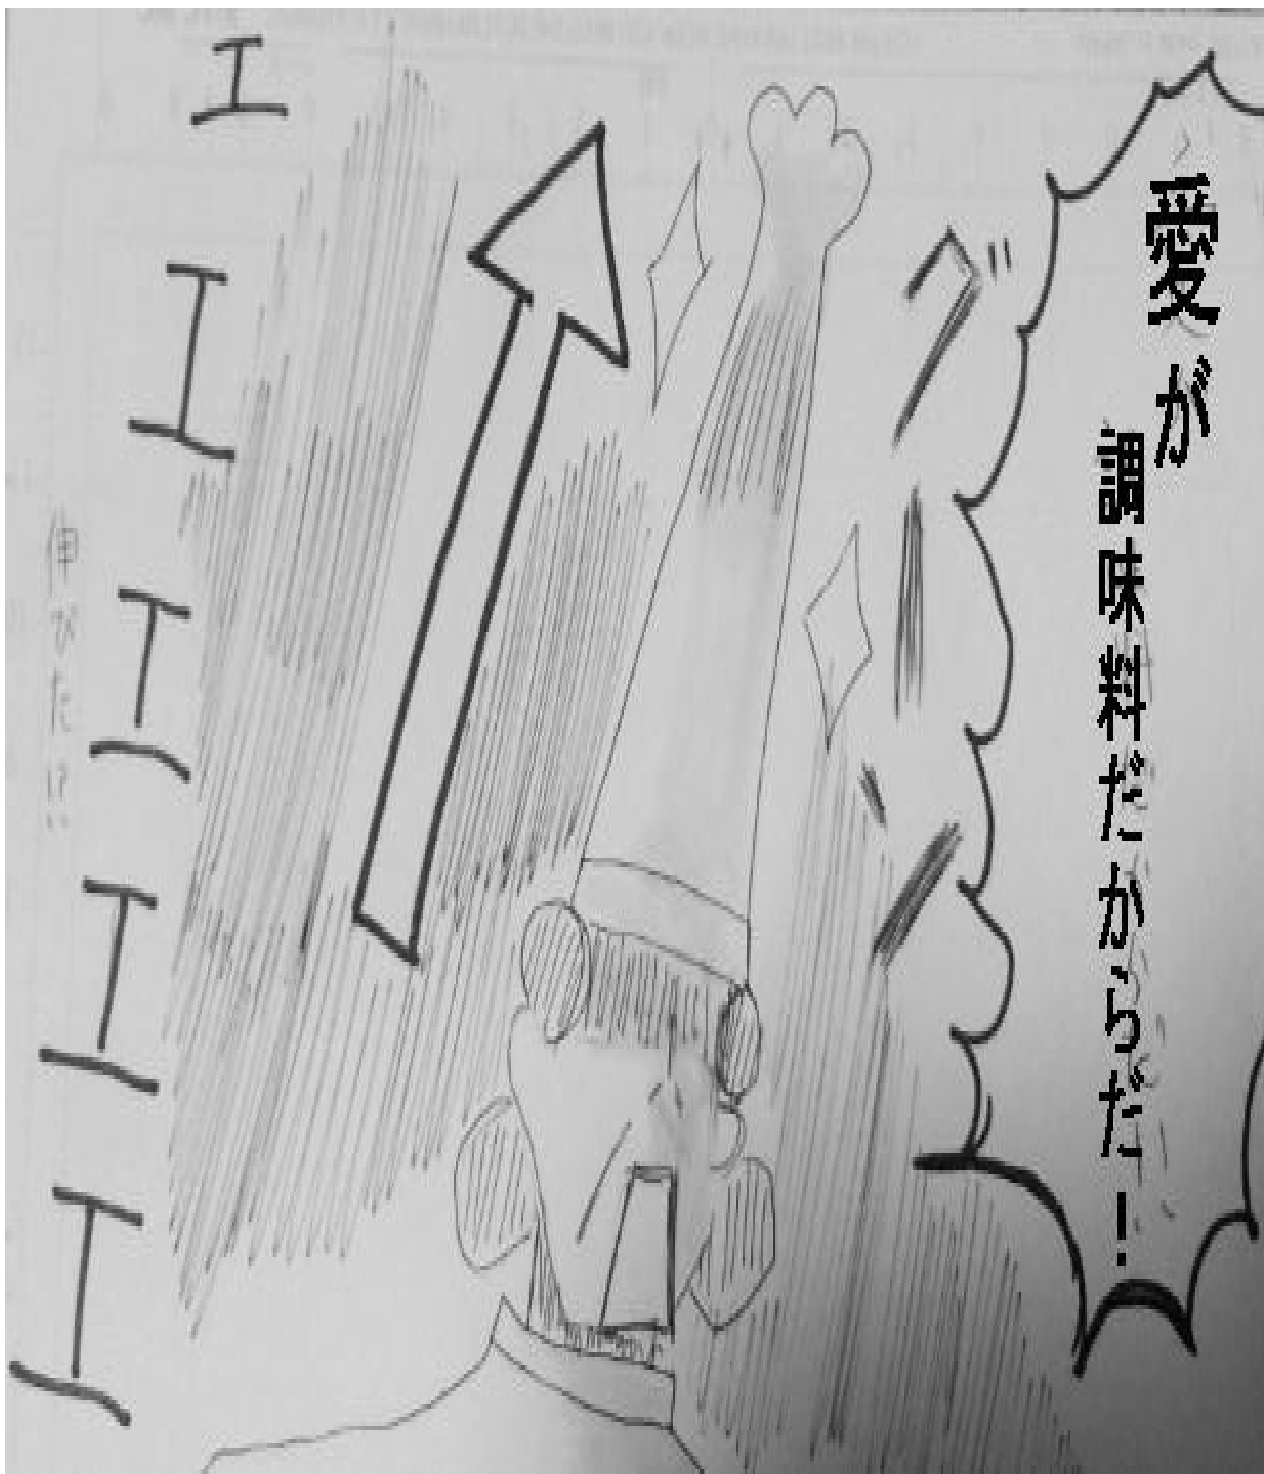 愛が
調味料だからだ！
グーン
エエエエエ
伸びた